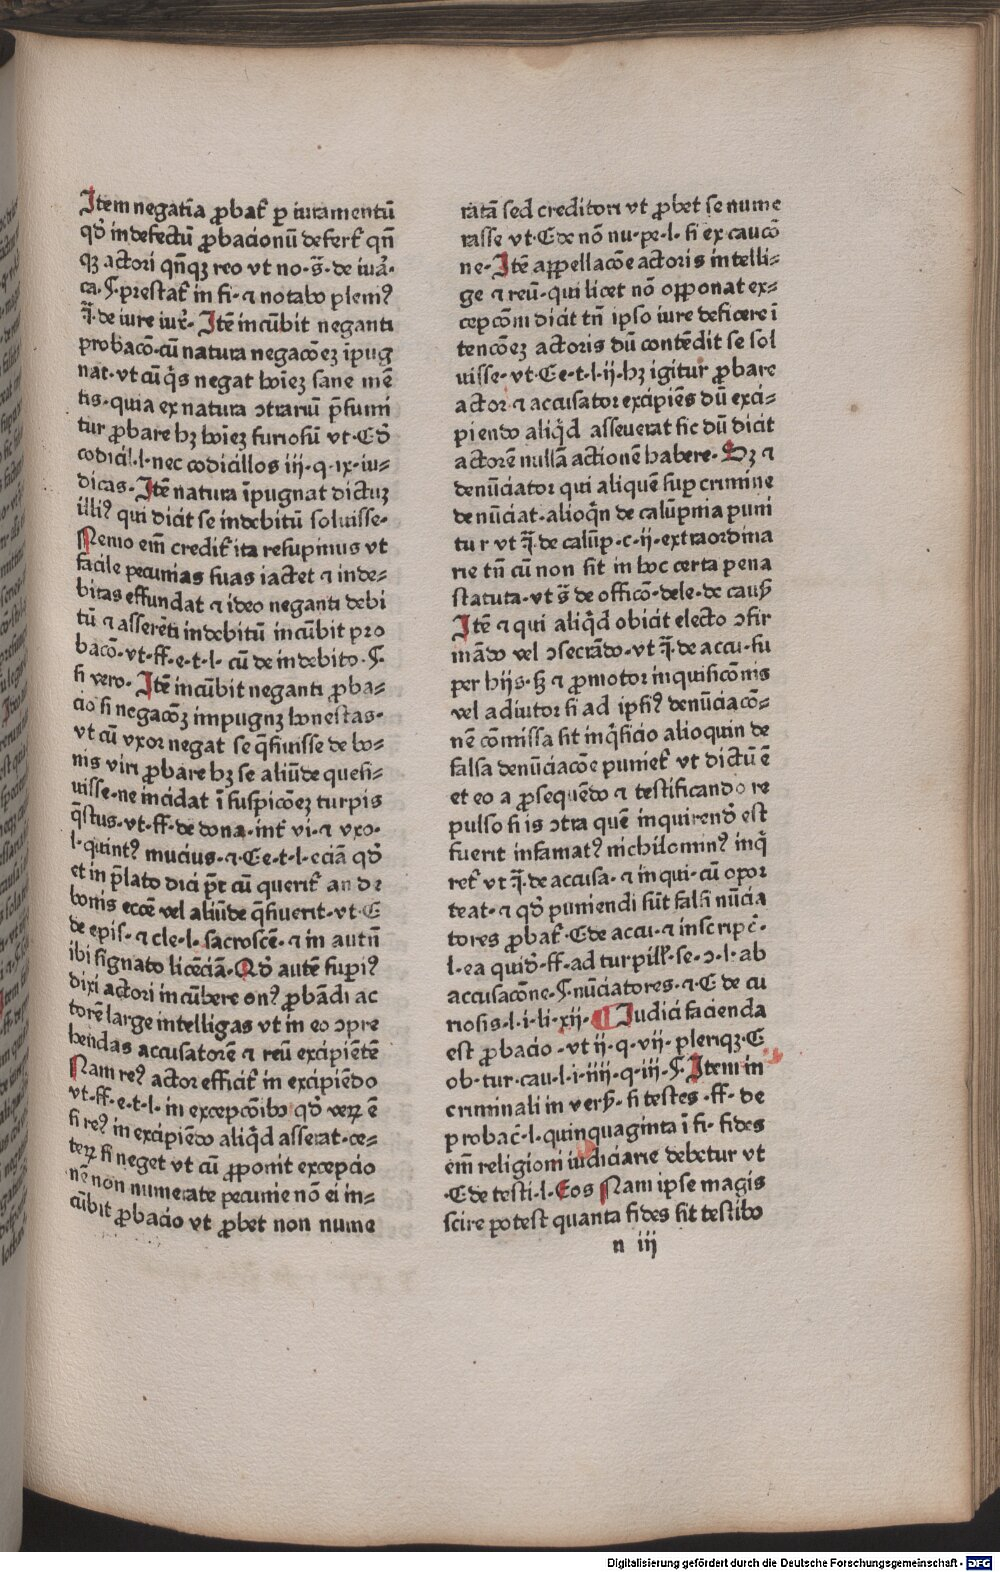 Item negatīa ꝓbať p iuramentū
qď in defectū ꝓbacionū defert̃ qñ
qꝫ actori qñqꝫ reo vt no·s̄·de iuȧ·
ca·¶·prestat̃ in fi·⁊ notabo pleniꝰ
ꝗ̄·de iure iur̃· Itē incūbit neganti
probacō·cū natura negacōeꝫ īpug
nat·vt cū q̇s negat hoīeꝫ sane mē
tis·quia ex natura ɔtrariū p̄sumi
tur ꝓbare hꝫ hoīeꝫ furiosū vt·C·ď
codicil·l·nec codicillos iij·q·ix·iu⸗
dicas·Itē natura īpugnat dictuꝫ
illiꝰ qui dicit se indebitū soluisse·
Nemo em̄ credit̃ ita resupinus vt
facile pecunias suas iactet ⁊ inde⸗
bitas effundat ⁊ ideo neganti debi
tū ⁊ asserēti indebitū incūbit pro
bacō·vt·ff·e·t·l· cū de indebito·¶·
si vero· Itē incūbit neganti ꝓba⸗
cio si negacōꝫ impugnꝫ honestas·
vt cū vxor negat se q̄siuisse de bo⸗
nis viri ꝓbare hꝫ se aliūde quesi⸗
uisse·ne incidat ī suspicōeꝫ turpis
q̄stus·vt·ff·de dona·int̃ vi·⁊ vxo·
l·quintꝰ mucius·⁊ C e·t·l·eciā qď
et in p̄lato dici pt̄ cū querit̃ an de
bonis eccē vel aliūde q̄siuerit·vt·C
de epis·⁊ cle·l·sacroscē·⁊ in autñ
ibi signato licēciā·Qď autē supiꝰ
dixi actori incūbere onꝰ ꝓbādi ac
torē large intelligas vt in eo ɔpre
hendas accusatorē ⁊ reū excipiētē
Nam reꝰ actor efficit̃ in excipiēdo
vt·ff·e·t·l·in excepcōibo qď verꝫ ē
si reꝰ in excipiēdo aliq̇d asserat·ce⸗
terꝫ si neget vt cū ꝓponit excepcio
nē non numerate pecunie nō ei in⸗
cūbit ꝓbacio vt ꝓbet non nume
ratā sed creditori vt ꝓbet se nume
rasse vt·C de nō nu·pe·l·si ex caucō
ne·Itē appellacōe actoris intelli⸗
ge ⁊ reū·qui licet nō opponat ex⸗
cepcōm dicit tn̄ ipso iure deficere ī
tencōeꝫ actoris dū contēdit se sol
uisse·vt·C e·t·l·ij·hꝫ igitur ꝓbare
actor ⁊ accusator excipiēs dū exci⸗
piendo aliq̇d asseuerat sic dū dicit
actorē nullā actionē habere·Hꝫ ⁊
denūciator qui aliquē sup crimine
denūciat·alioq̄n de calūpnia puni
tur vt ꝗ̄·de calūp·c·ij·extraordina
rie tn̄ cū non sit in hoc certa pena
statuta·vt s̄ de officō·dele·de caup̄
Itē ⁊ qui aliq̇d obicit electo ɔfir
mādo vel ɔsecrādo·vt ꝗ̄·de accu·su
per hijs·sꝫ ⁊ ꝓmotor inquisicōnis
vel adiutor si ad ipsiꝰ denūciacō⸗
nē cōmissa sit inq̇sicio alioquin de
falsa denūciacōe puniet̃ vt dictū ē
et eo a ꝓsequēdo ⁊ testificando re
pulso si is ɔtra quē inquirenď est
fuerit infamatꝰ nichilominꝰ inq̇
ret̃ vt ꝗ̄·de accusa·⁊ inqui·cū opor
teat·⁊ qď puniendi sūt falsi nūcia
tores ꝓbat̃·C de accu·⁊ inscripč·
l·ea quiď·ff·ad turpill̃·se·ɔ·l·ab
accusacōne·¶·nūciatores·⁊·C de cu
riosis·l·i·li·xij·¶ Iudici facienda
est ꝓbacio·vt ij·q·vij·pleriqꝫ·C
ob·tur·cau·l·i·iiij·q·iij·¶·Item in
criminali in verp̄·si testes·ff·de
probač·l·quinquaginta ī fi·fides
em̄ religioni iudiciarie debetur vt
·C de testi·l·Eos Nam ipse magis
scire potest quanta fides sit testibo
n iij
Digitalisierung gefördert durch die Deutsche Forschungsgemeinschaft - DFG